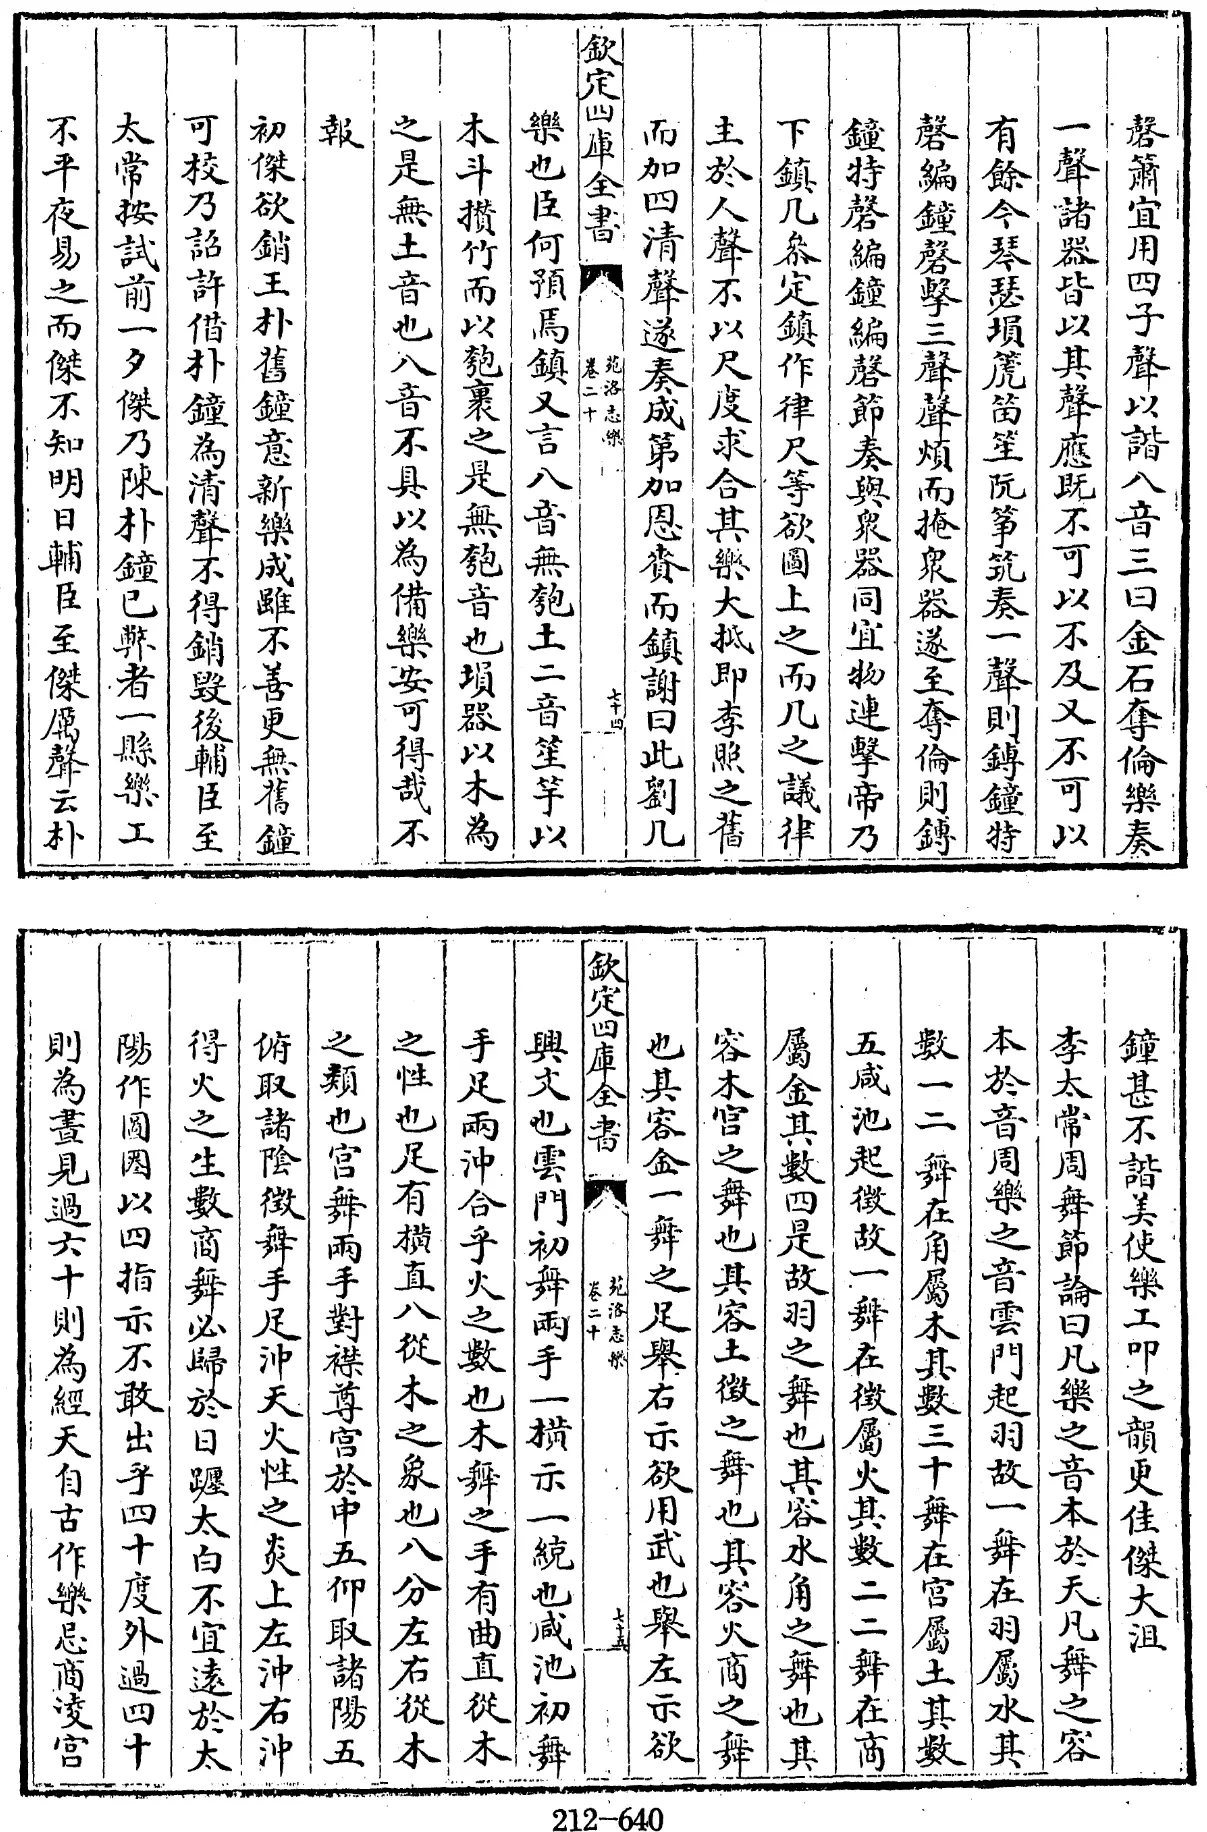 磬簫宜用四子聲以諧八音三曰金石奪倫樂奏
一聲諸器皆以其聲應既不可以不及又不可以
有餘今琴瑟塤箎笛笙阮筝筑奏一聲則鎛鐘特
磬編鐘磬擊三聲聲煩而掩衆器遂至奪倫則鎛
鐘特磬編鐘編磬節奏與衆器同宜物連擊帝乃
下鎮几叅定鎮作律尺等欲圖上之而几之議律
主於人聲不以尺度求合其樂大抵即李照之舊
而加四清聲遂奏成第加恩賚而鎮謝曰此劉几
欽定四庫全書
苑洛志樂
卷二十
七十四
樂也臣何預焉鎮又言八音無匏土二音笙竽以
木斗攢竹而以匏裹之是無匏音也塤器以木為
之是無土音也八音不具以為備樂安可得哉不
報
初傑欲銷王朴舊鐘意新樂成雖不善更無舊鐘
可校乃詔許借朴鐘為清聲不得銷毀後輔臣至
太常按試前一夕傑乃陳朴鐘已弊者一縣樂工
不平夜易之而傑不知明日輔臣至傑厲聲云朴
鐘甚不諧美使樂工叩之韻更佳傑大沮
李太常周舞節論曰凡樂之音本於天凡舞之容
本於音周樂之音雲門起羽故一舞在羽屬水其
數一二舞在角屬木其數三十舞在宮屬土其數
五咸池起徵故一舞在徵屬火其數二二舞在商
屬金其數四是故羽之舞也其容水角之舞也其
容木宮之舞也其容土徵之舞也其容火商之舞
也其容金一舞之足舉右示欲用武也舉左示欲
欽定四庫全書
苑洛志樂
卷二十
七十五
興文也雲門初舞兩手一横示一統也咸池初舞
手足兩沖合乎火之數也木舞之手有曲直從木
之性也足有横直八從木之象也八分左右從木
之類也宮舞兩手對襟尊宮於中五仰取諸陽五
俯取諸陰徵舞手足沖天火性之炎上左沖右沖
得火之生數商舞必歸於日躔太白不宜遠於太
陽作圖圈以四指示不敢出乎四十度外過四十
則為晝見過六十則為經天自古作樂忌商凌宮
212-640